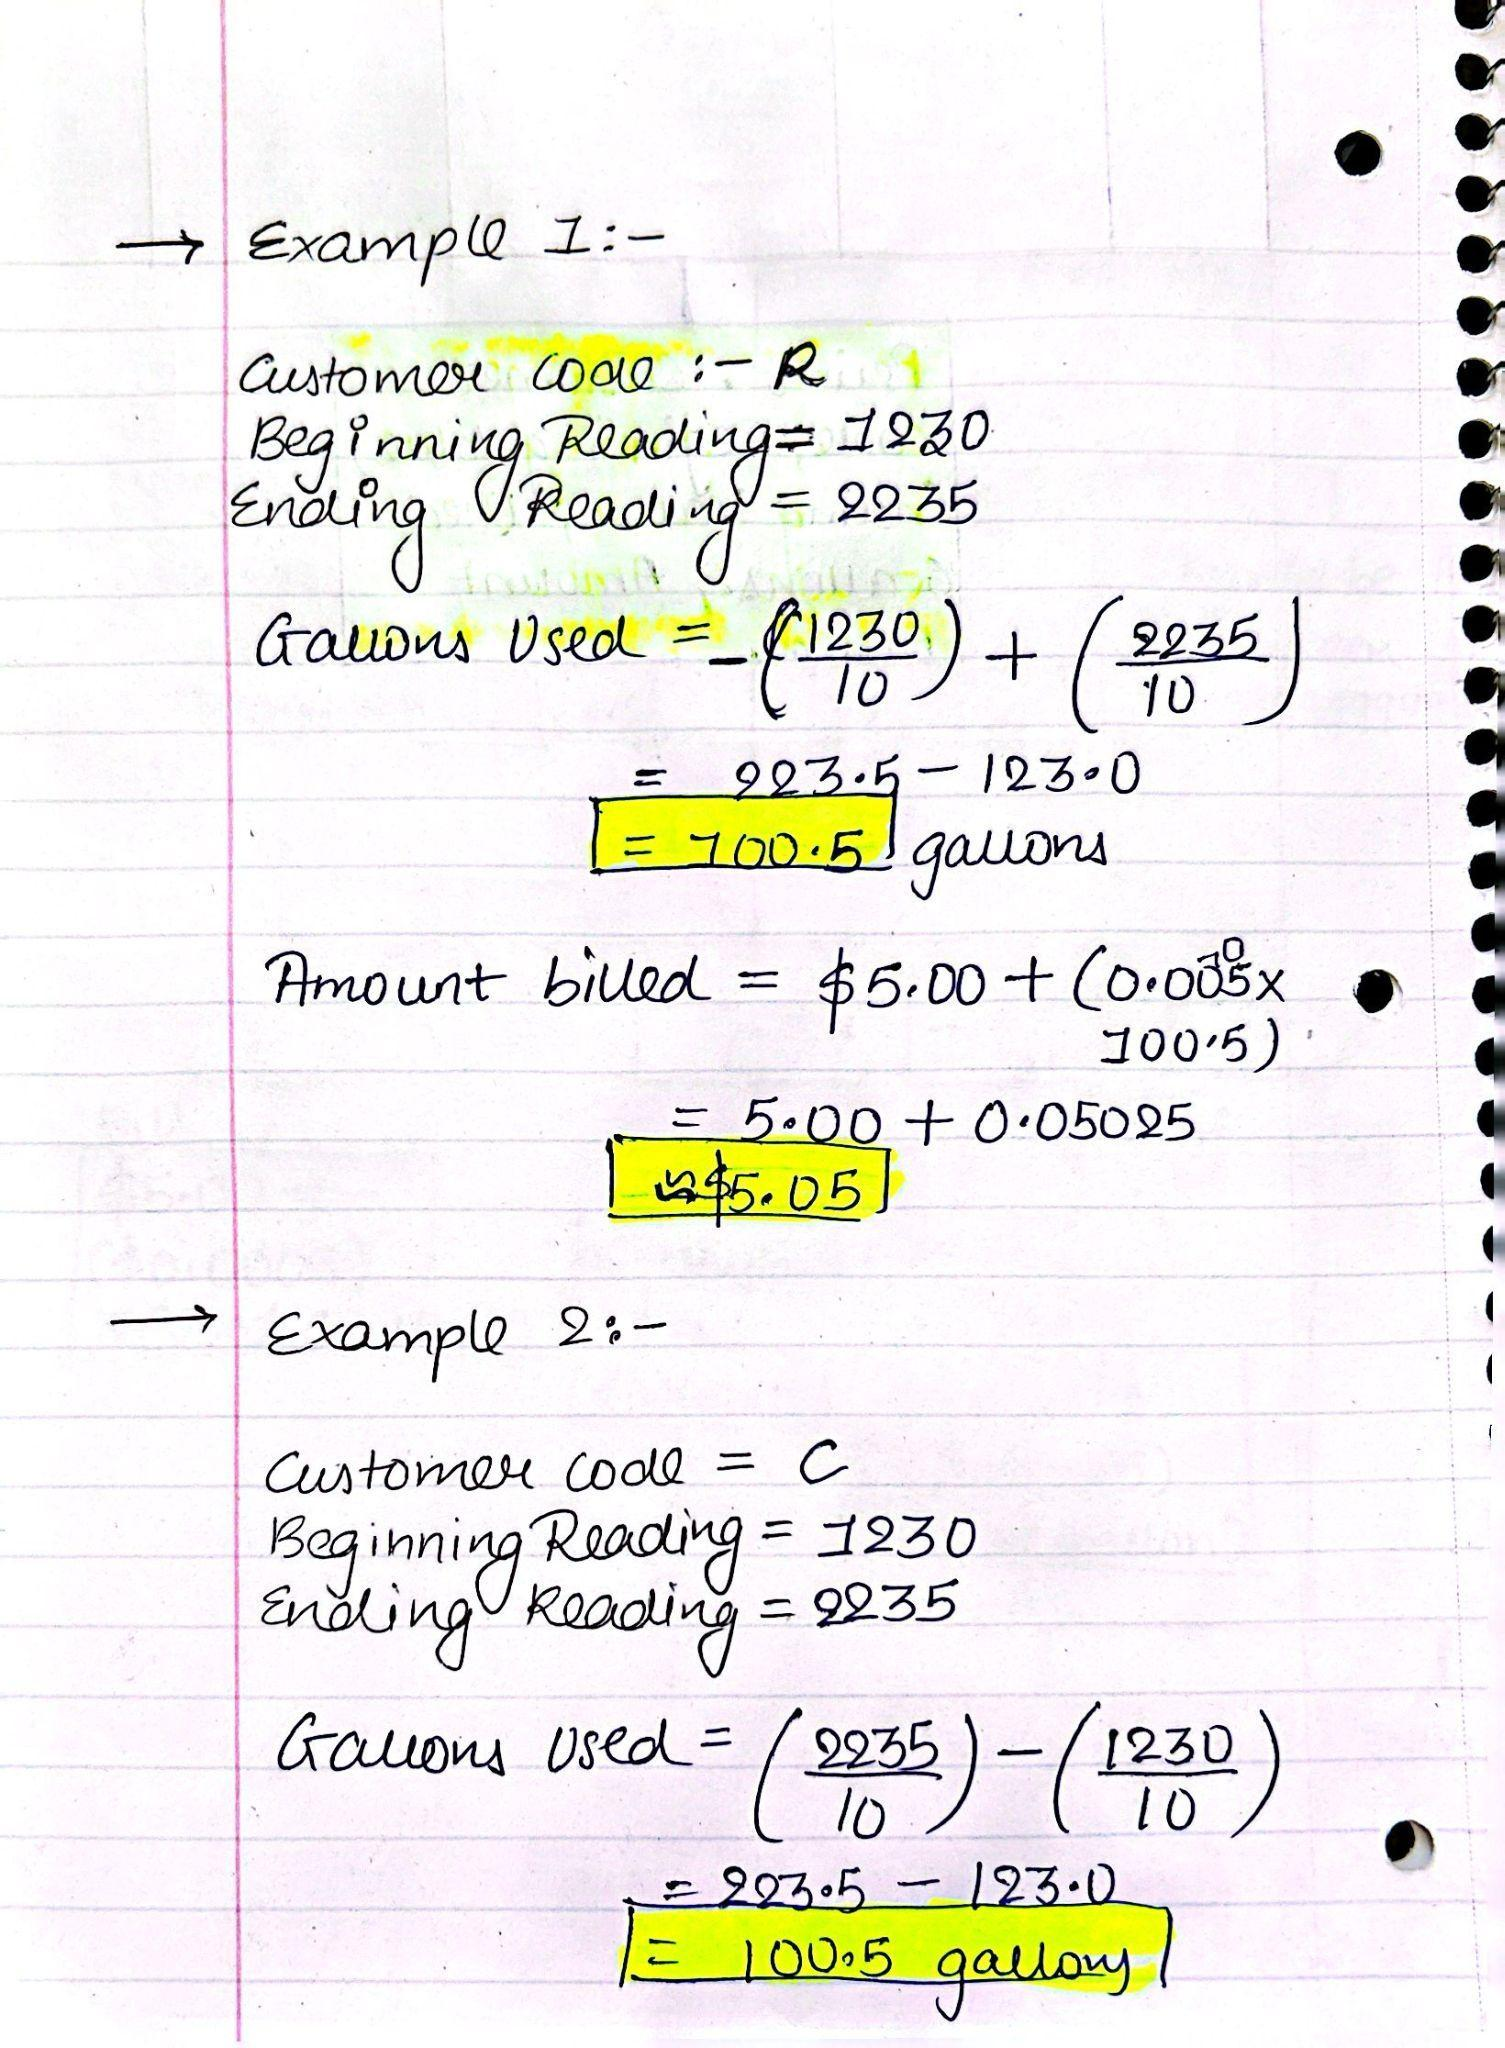 → Example 1:-
Customer code :- R
Beginning Reading = 1230
Ending Reading = 2235
Gallons Used = -(1230/10) + (2235/10)
= 223.5 - 123.0
= 100.5 gallons
Amount billed = $5.00 + (0.0005x
100.5)
= 5.00 + 0.05025
≈$5.05
→ Example 2:-
Customer code = C
Beginning Reading = 1230
Ending Reading = 2235
Gallons Used = (2235/10) - (1230/10)
= 223.5 - 123.0
= 100.5 gallons